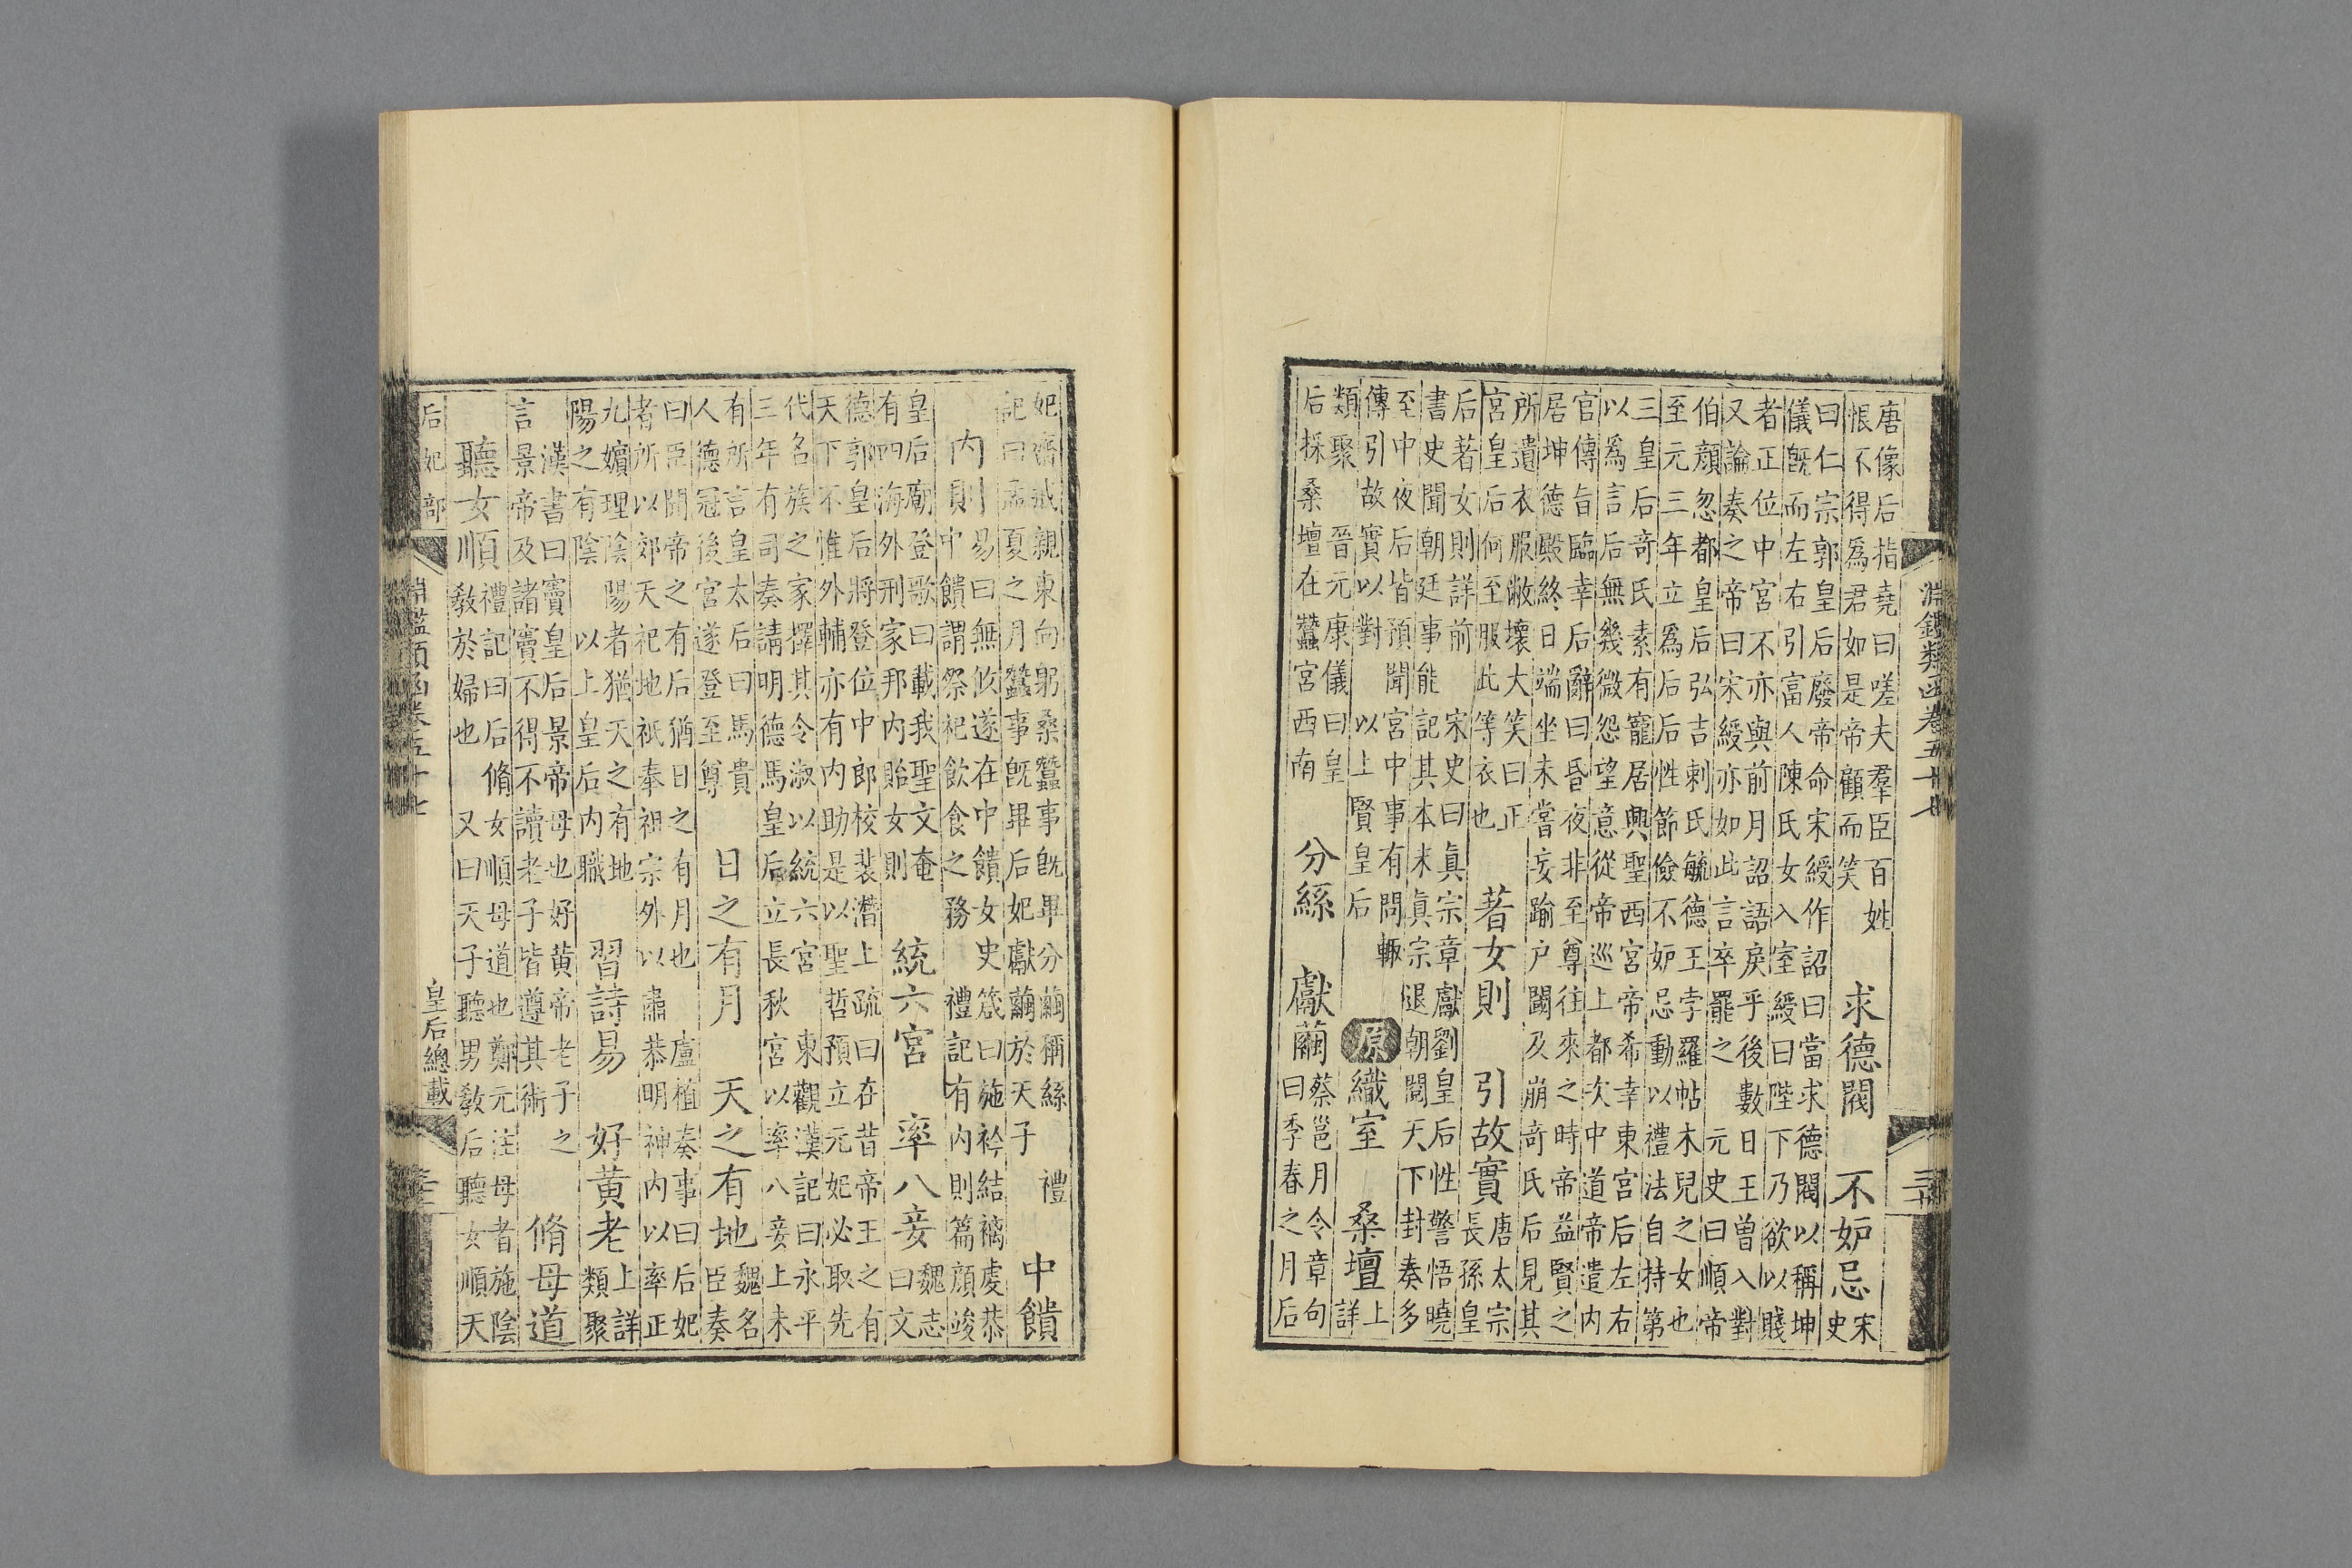 淵鑑類函卷五十七 三十
唐像后指堯曰嗟夫羣臣百姓
恨不得爲君如是帝顧而笑
求德閥 不妬忌
宋
史
曰仁宗郭皇后廢帝命宋綬作詔曰當求德閥以稱坤
儀旣而左右引富人陳氏女入室綬曰陛下乃欲以賤
者正位中宮不亦與前月詔語戾乎後數日王曾入對
又論奏之帝曰宋綬亦如此言卒罷之 元史曰順帝
伯顏忽都皇后弘吉剌氏毓德王孛羅帖木兒之女也
至元三年立爲后后性節儉不妬忌動以禮法自持第
三皇后奇氏素有寵居興聖西宮帝希幸東宮后左右
以爲言后無幾微怨望意從帝巡上都次中道帝遣内
官傳旨臨幸后辭曰昏夜非至尊往來之時帝益賢之
居坤德殿終日端坐未嘗妄踰戶閾及崩奇氏后見其
所遺衣服敝壞大笑曰正
宮皇后何至服此等衣也
著女則 引故實
唐太宗
長孫皇
后著女則詳前 宋史曰真宗章獻劉皇后性警悟曉
書史聞朝廷事能記其本末真宗退朝閱天下封奏多
至中夜后皆預聞宮中事有問輒
傳引故實以對 以上賢皇后
原 織室 桑壇
上
詳
類聚 晉元康儀曰皇
后採桑壇在蠶宮西南
分絲 獻繭
蔡邕月令章句
曰季春之月后
妃齋戒親東向躬桑蠶事旣畢分繭稱絲 禮
記曰孟夏之月蠶事旣畢后妃獻繭於天子
中饋
内則
易曰無攸遂在中饋女史箴曰施衿結褵虔恭
中饋謂祭祀飲食之務 禮記有内則篇顏竣
皇后廟登歌曰載我聖文奄
有四海外刑家邦内貽女則
統六宮 率八妾
魏志
曰文
德郭皇后將登位中郎校裴潛上疏曰在昔帝王之有
天下不惟外輔亦有内助是以聖哲預立元妃必取先
代名族之家擇其令淑以統六宮 東觀漢記曰永平
三年有司奏請明德馬皇后立長秋宮以率八妾上未
有所言皇太后曰馬貴
人德冠後宮遂登至尊
日之有月 天之有地
魏名
臣奏
曰臣聞帝之有后猶日之有月也 盧植奏事曰后妃
者所以郊天祀地祇奉祖宗外以肅恭明神内以率正
九嬪理陰陽者猶天之有地
陽之有陰 以上皇后内職
習詩易 好黃老
上詳
類聚
漢書曰竇皇后景帝母也好黃帝老子之
言景帝及諸竇不得不讀老子皆遵其術
脩母道
聽女順
禮記曰后脩女順母道也鄭元注母者施陰
教於婦也 又曰天子聽男教后聽女順天
后妃部 淵鑑類函卷五十七 皇后總載